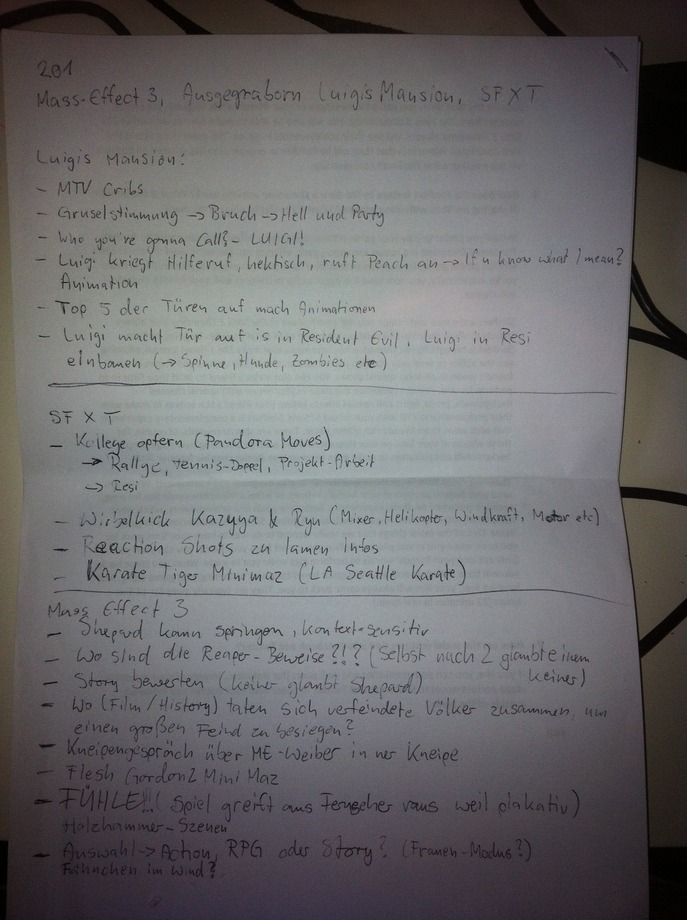 201
Mass-Effect 3, Ausgegraborn Luigis Mansion, SF X T
Luigis Mansion:
- MTV Cribs
- Gruselstimmung → Bruch → Hell und Party
- Who you're gonna Call? - LUIGI!
- Luigi kriegt Hilferuf, hektisch, ruft Peach an → If u know what I mean?
Animation
- Top 5 der Türen auf mach Animationen
- Luigi macht Tür auf is in Resident Evil. Luigi in Resi
einbauen (→ Spinne, Hunde, Zombies etc)
SF X T
- Kollege opfern (Pandora Moves)
→ Rallye, Tennis-Doppel, Projekt-Arbeit
→ Resi
- Wirbelkick Kazyya & Ryu (Mixer, Helikopter, Windkraft, Motor etc)
- Reaction Shots zu lamen Infos
- Karate Tiger Minimaz (LA Seattle Karate)
Mass Effect 3
- Shepard kann springen, kontext-sensitiv
- Wo sind die Reaper-Beweise?!? (Selbst nach 2 glaubte ihm
keiner)
- Story bewerten (keiner glaubt Shepard)
- Wo (Film/History) taten sich verfeindete Völker zusammen, um
einen großen Feind zu besiegen?
- Kneipengespräch über ME-Weiber in ner Kneipe
- Flesh Gordon 2 Mini Maz
- FÜHLE!!! (Spiel greift aus Fernseher raus weil plakativ)
Holzhammer-Szenen
- Auswahl → Action, RPG oder Story? (Frauen-Modus?)
Fähnchen im Wind?